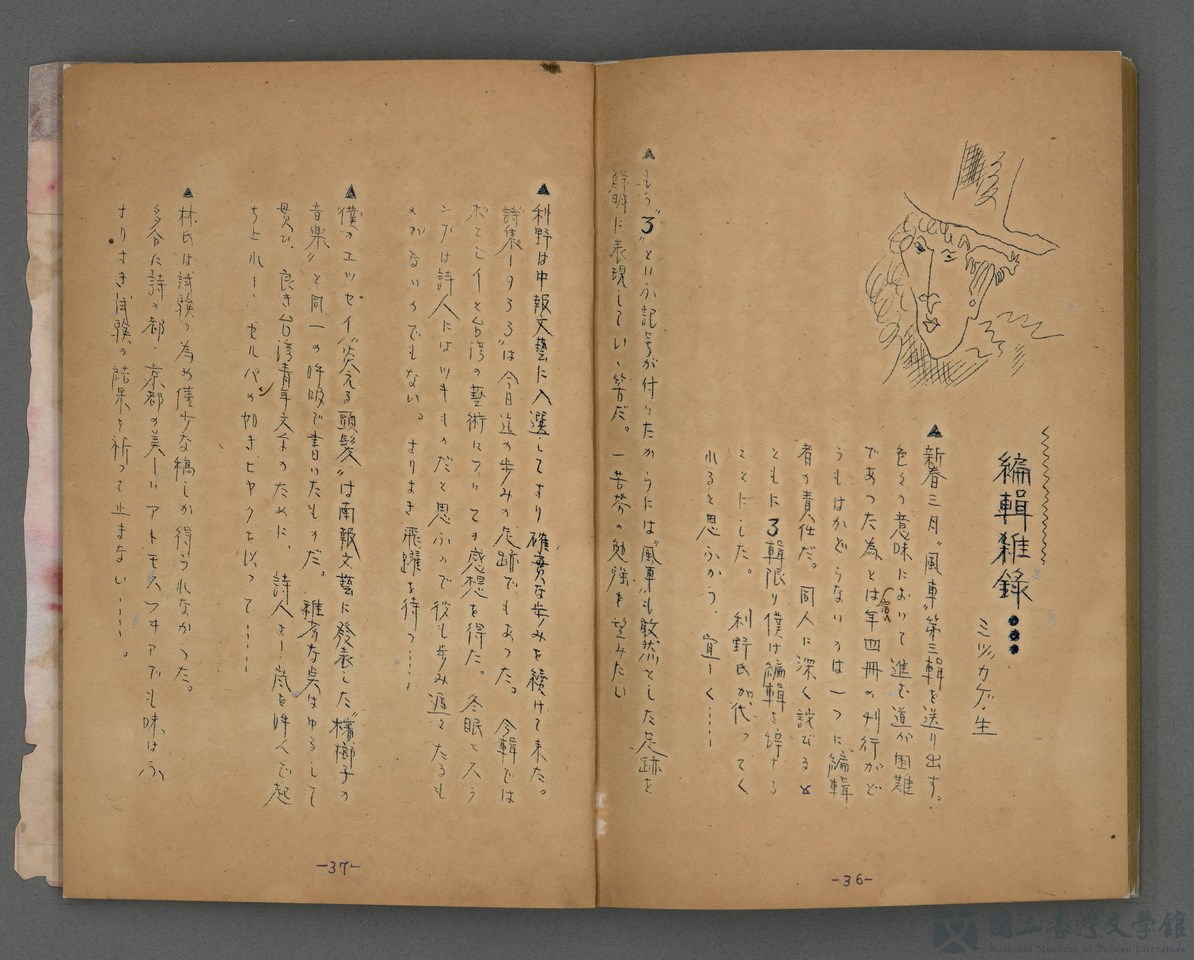 編輯雑錄
ミツカゲ・生
▲新春三月。"風車"第三輯を送り出す。
色々の意味において進む道が困難
であつた為とは(云へ)年四冊の刊行がど
うもはかどらないのは一つに編輯
者の責任だ。同人に深く詫びると
ともに3輯限り僕は編輯を辞する
ことにした。利野氏が代つてく
れると思ふから、宜しく……
▲もう"3"といふ記号が付いたからには"風車"も敢然とした足跡を
鮮明に表現していゝ筈だ。一苦労の勉強を望みたい
-36-
▲利野は中報文藝に入選してより確実な歩みを続けて来た。
詩集1933"は今日迄の歩みの足跡でもあつた。今輯では
ポエヂイと台湾の藝術についての感想を得た。冬眠と云う
は詩人にはツキものだと思ふので彼も歩み遅々たるも
のがないのでもない。よりよき飛躍を待つ……
▲僕のエッセイ"炎える頭髪"は南報文藝に發表した"檳榔子の
音楽"と同一の呼吸で書いたものだ。雑夛な臭はゆるして
貰ひ、良き台湾青年文学のために、詩人よ!嵐を呼んで起
ち上れ!
セルパンの如きヒヤクを以つて……
▲林氏は試験の為め僅少な稿しか得られなかつた。
多分に詩の都・京都の美しいアトモスフヰアでも味はふ
よりよき試験の結果を祈つて止まない……。
-37-
國立臺灣文學館
National Museum of Taiwan Literature